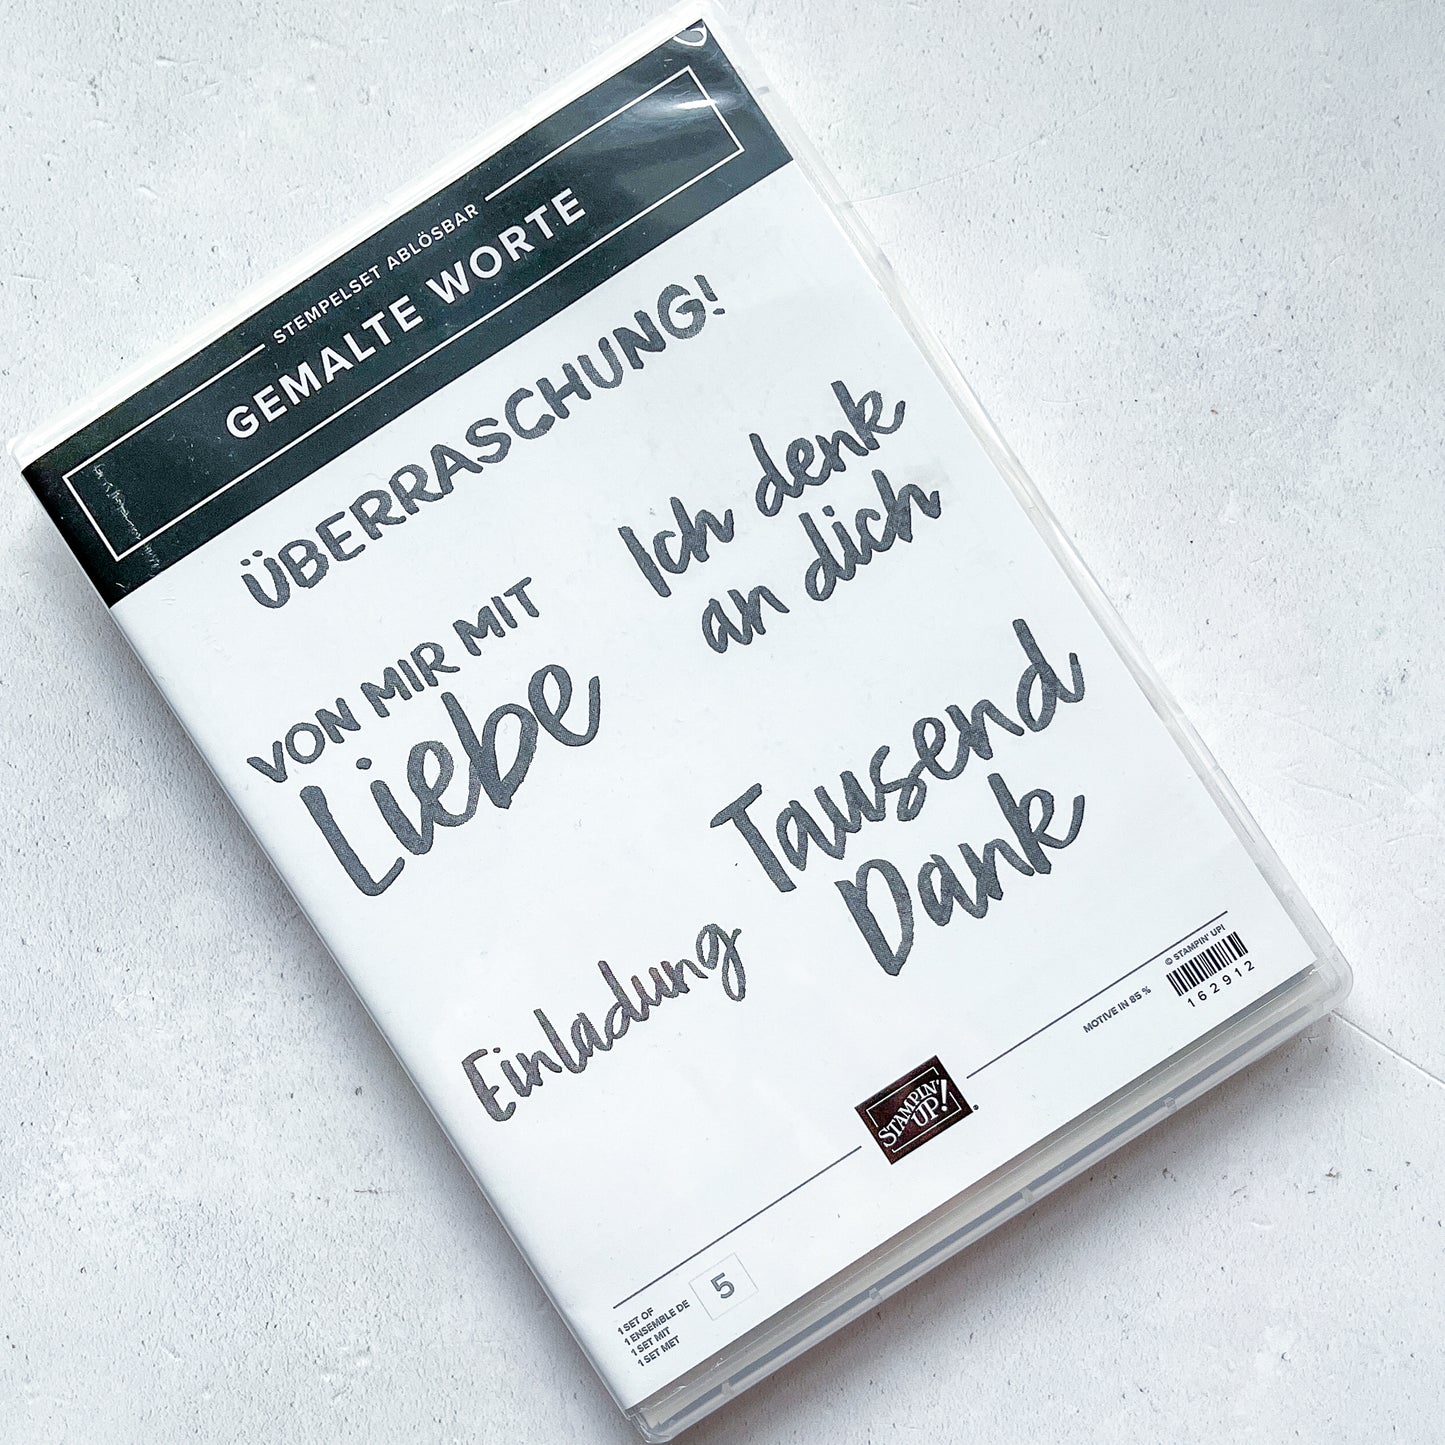 STEMPELSET ABLÖSBAR
GEMALTE WORTE
ÜBERRASCHUNG!
Ich denk
an dich
VON MIR MIT
Liebe
Tausend
Dank
Einladung
© STAMPIN' UP!
MOTIVE IN 85 %
162912
STAMPIN'
UP!®
1 SET OF
1 ENSEMBLE DE
1 SET MIT
1 SET MET
5